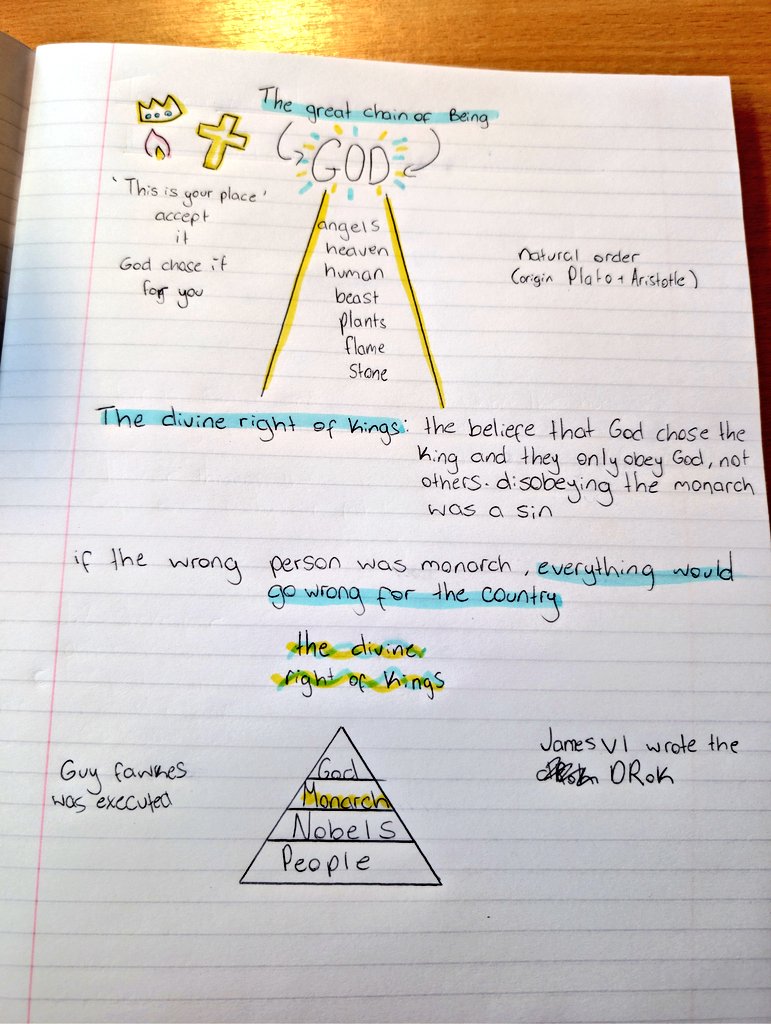 The great chain of Being
GOD
'This is your place'
accept
it
God chose it
for you
angels
heaven
human
beast
plants
flame
Stone
natural order
(origin Plato + Aristotle)
The divine right of Kings: the beliefe that God chose the
King and they only obey God, not
others. disobeying the monarch
was a sin
if the wrong person was monarch, everything would
go wrong for the country
the divine
right of Kings
Guy fawkes
was executed
God
Monarch
Nobels
People
James VI wrote the
DRoK